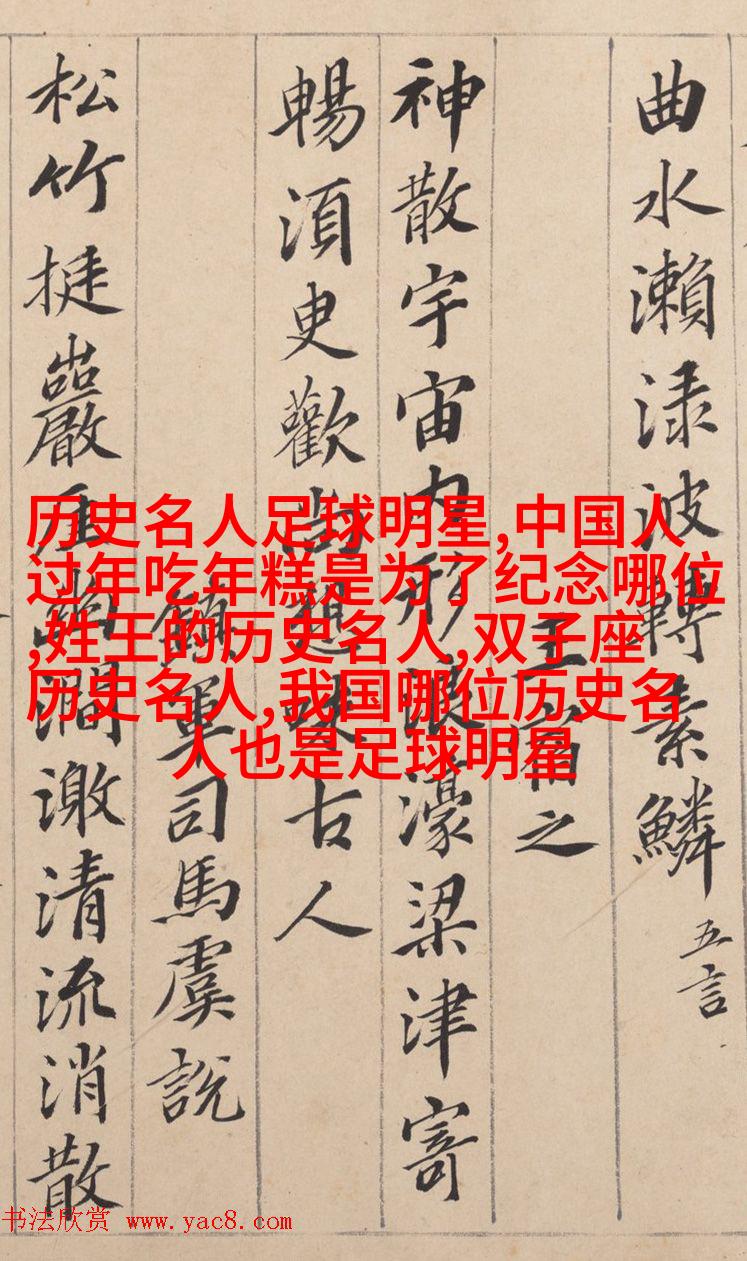 曲水瀨渌波轉素鱗 五言
王宿之
神散宇宙内形浪濠梁津寄
暢湏臾歡尚想味古人
鎮軍司馬虞說
松竹挺巖崖幽澗激清流消散
历史名人足球明星,中国人
过年吃年糕是为了纪念哪位
,姓王的历史名人,双子座
历史名人,我国哪位历史名
人也是足球明星
书法欣赏 www.yac8.com